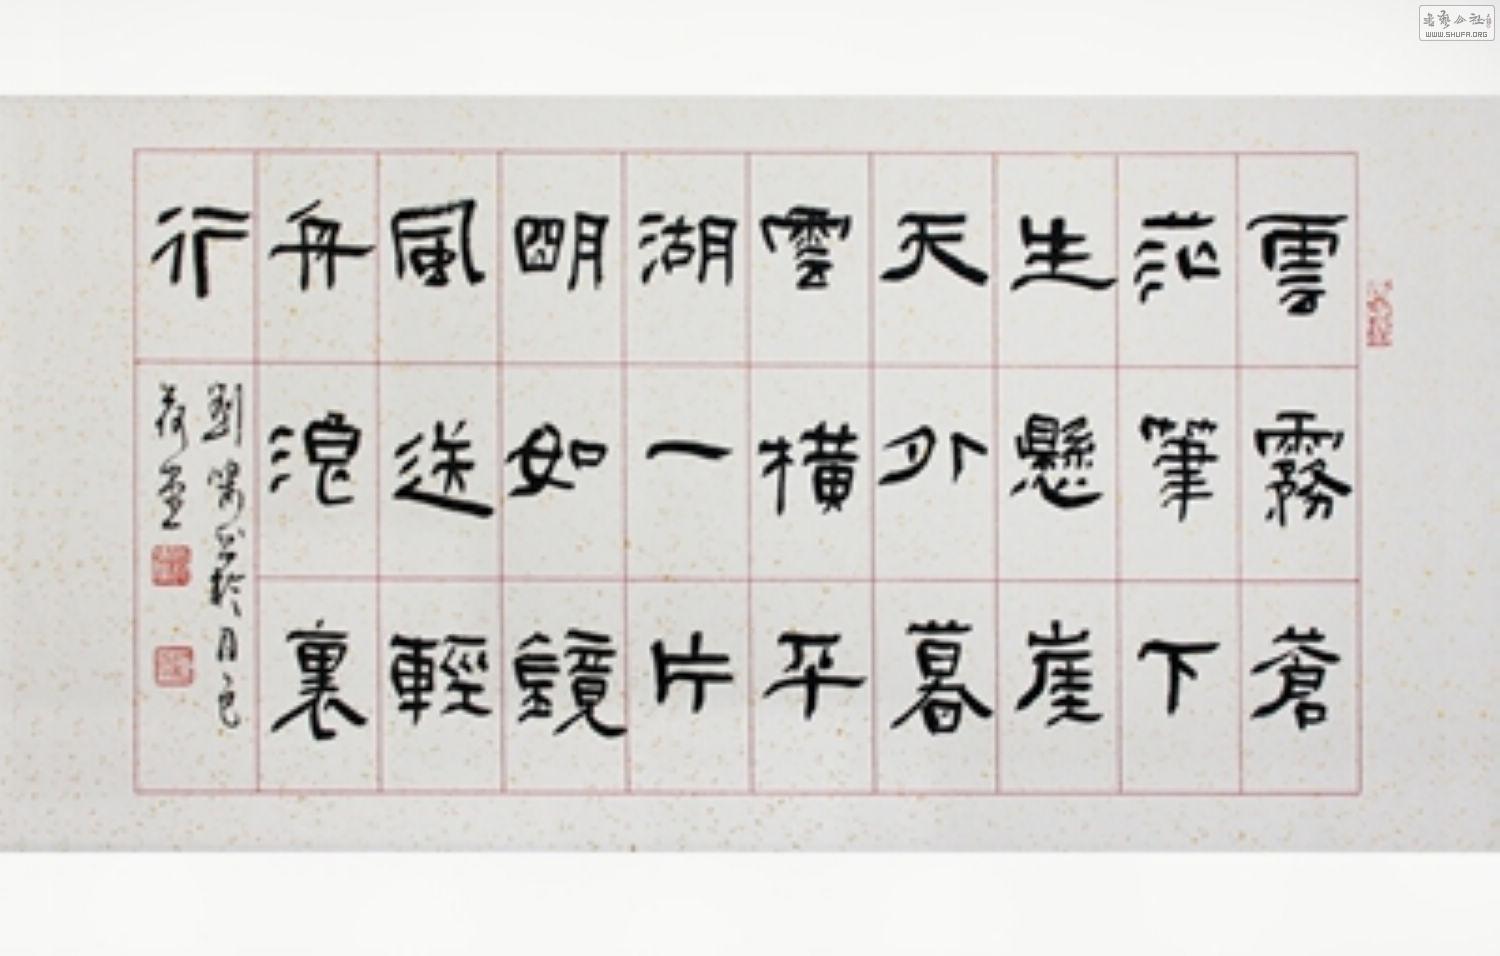 雲霧蒼
茫筆下
生懸崖
天外暮
雲橫平
湖一片
明如鏡
風送輕
舟浪裏
行
劉
於月色
荷
WWW.SHUFA.ORG